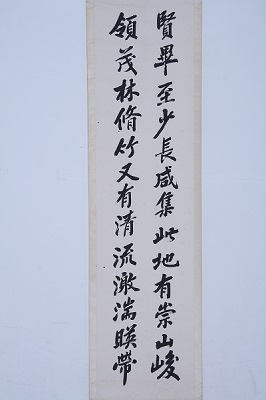 賢畢至少長咸集此地有崇山峻
領茂林脩竹又有清流激湍暎帶